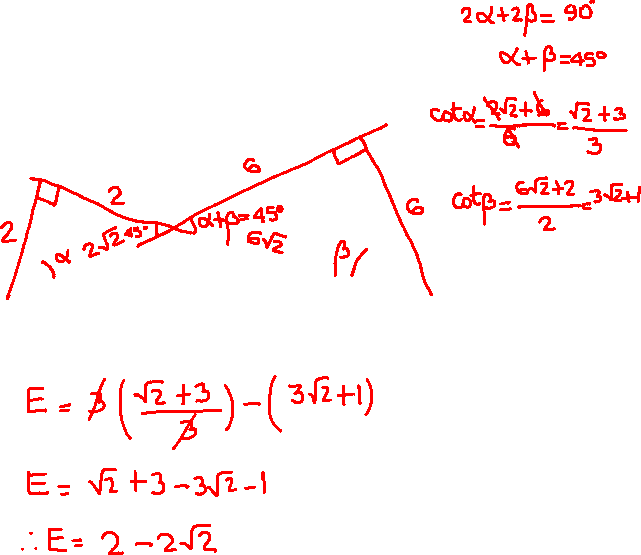 2α+2β=90°
α+β=45°
cotα=2√2+6/6=√2+3/3
cotβ=6√2+2/2=3√2+1
6
2
2
α+β=45°
6
α
2√2
45°
6√2
β
E=3(√2+3/3)-(3√2+1)
E=√2+3-3√2-1
∴E=2-2√2